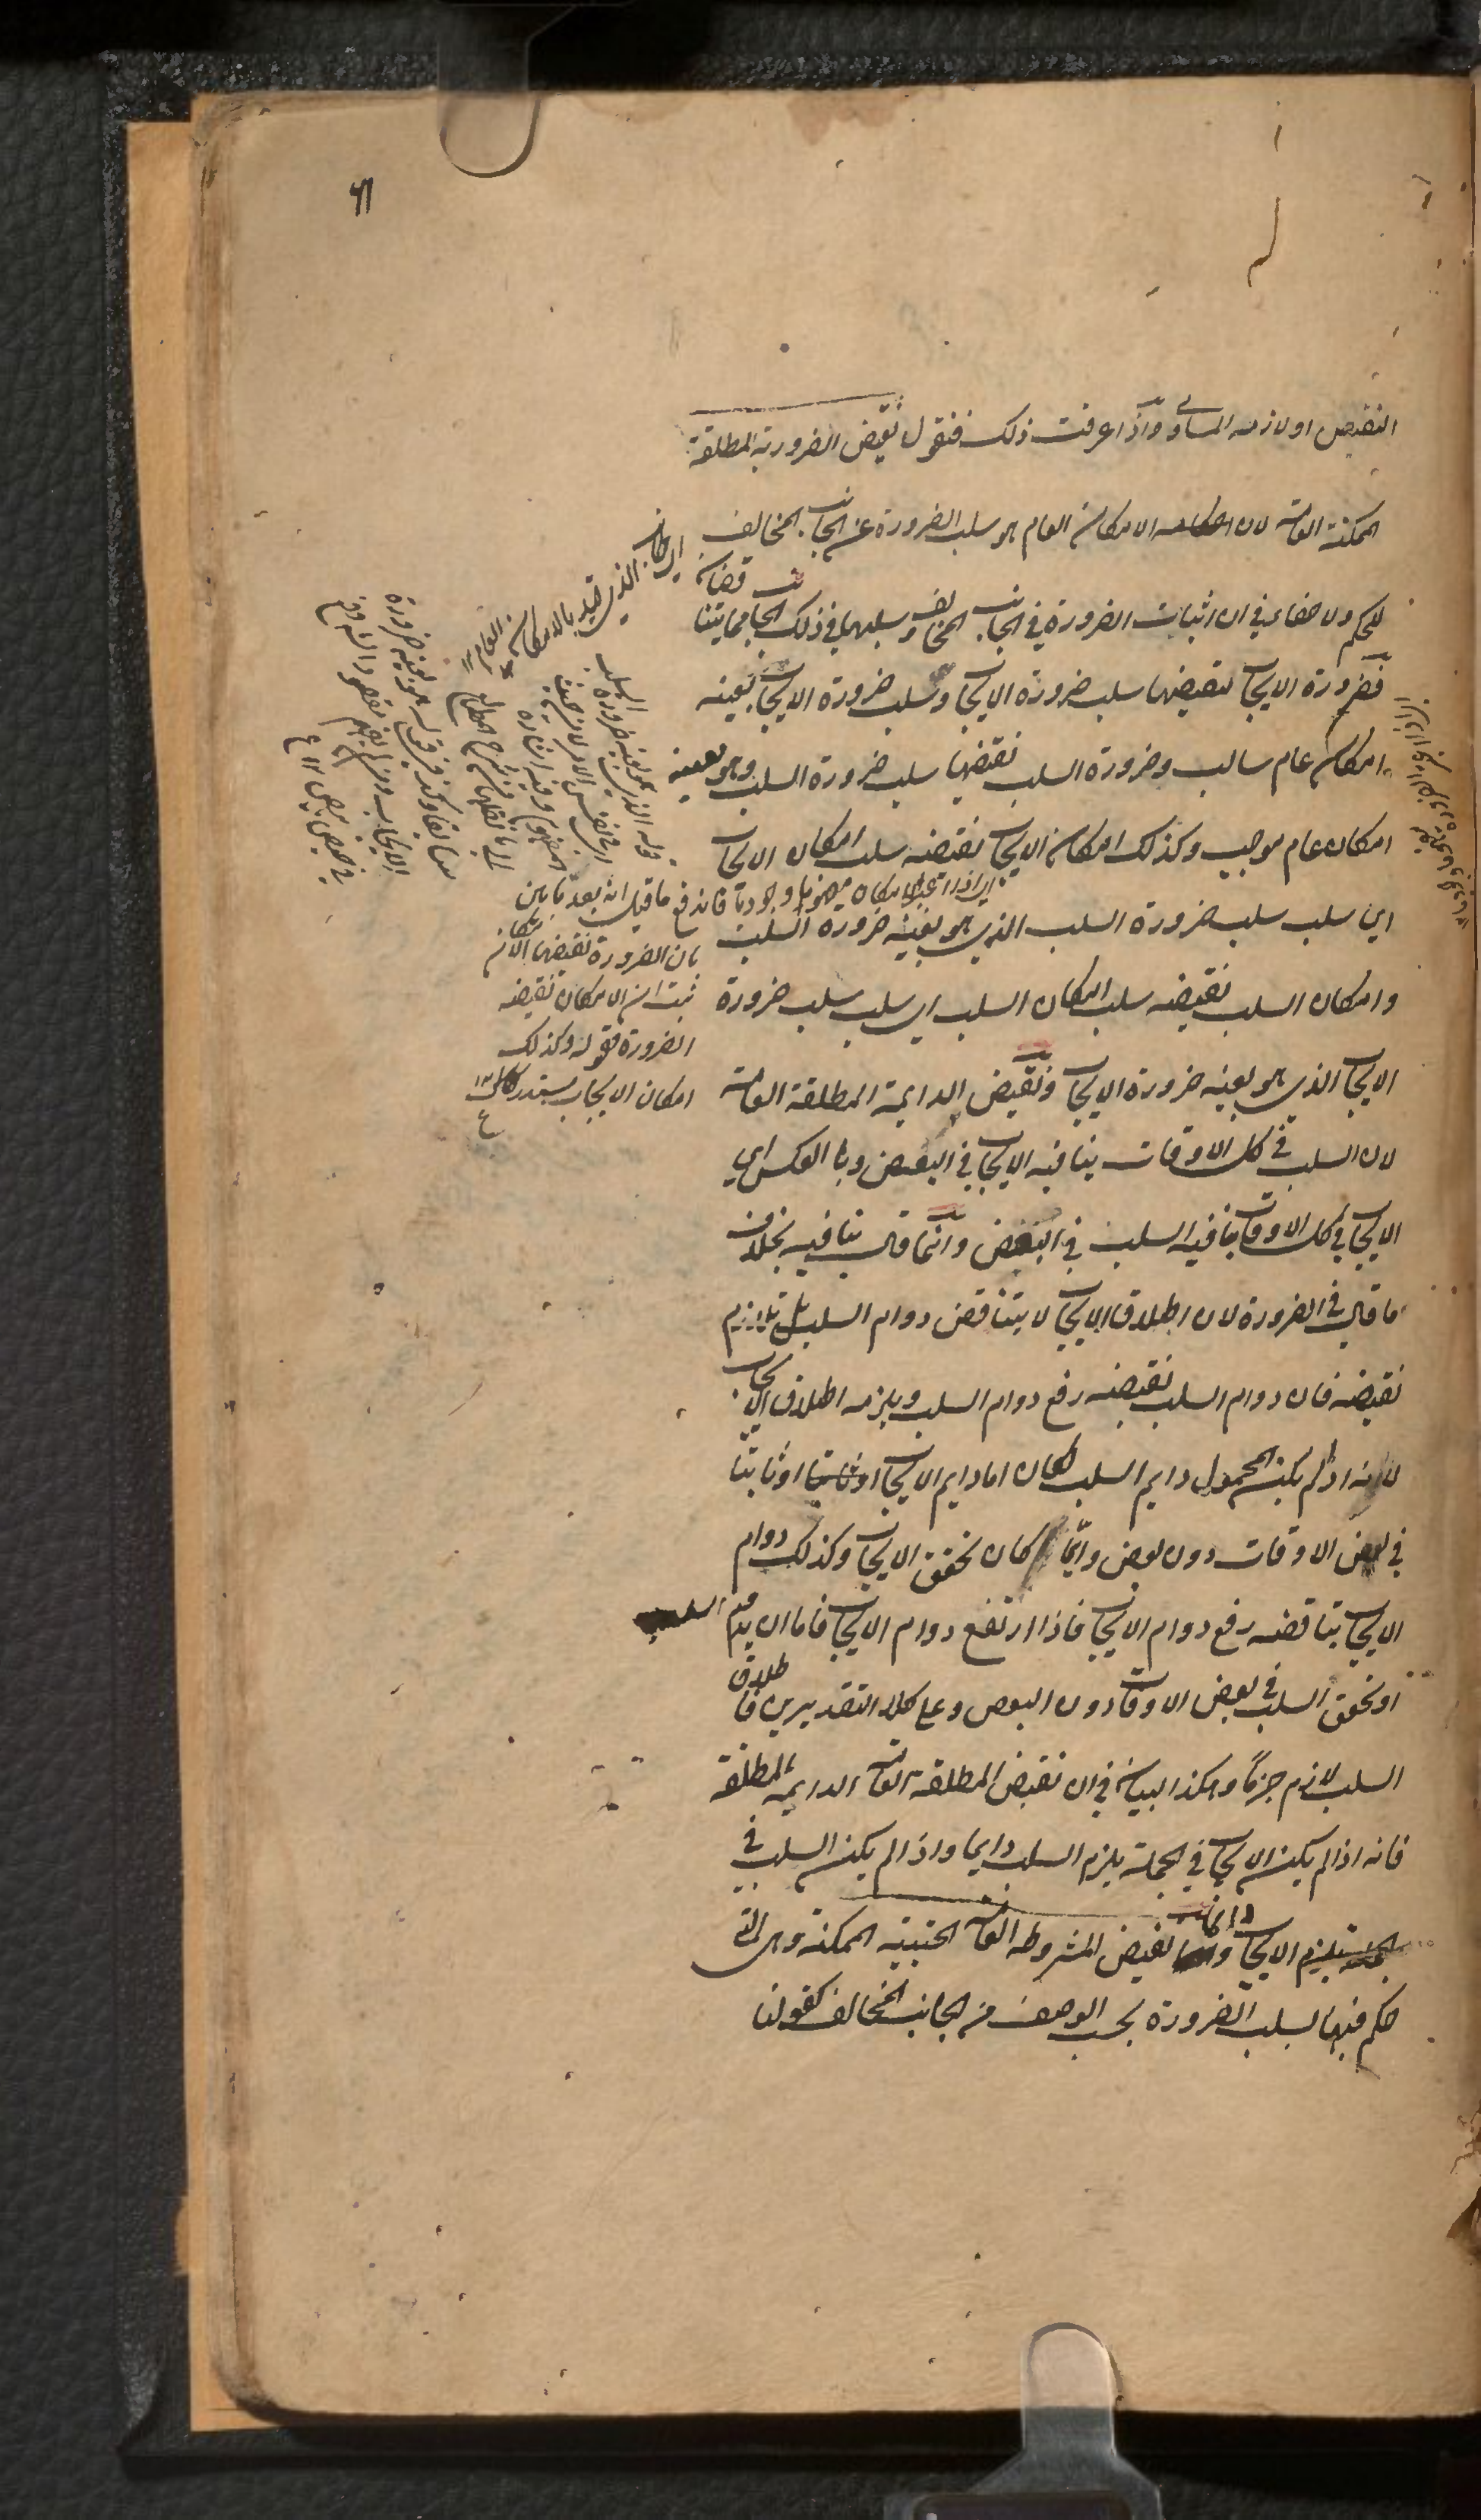 ٦١
النقيض او لازمه المساوي واذا عرفت ذلك فنقول نقيض الضرورية المطلقة
الممكنة العامة لان الامكان العام هو سلب الضرورة عن الجانب المخالف
للحكم ولا خفاء في ان اثبات الضرورة في الجانب المخالف وسلبها في ذلك الجانب مما يتناقضان
فضرورة الايجاب نقيضها سلب ضرورة الايجاب وسلب ضرورة الايجاب بعينه
امكان عام سالب وضرورة السلب نقيضها سلب ضرورة السلب وهو بعينه
امكان عام موجب وكذلك امكان الايجاب نقيضه سلب امكان الايجاب
اي سلب سلب ضرورة السلب الذي هو بعينه ضرورة السلب
وامكان السلب نقيضه سلب امكان السلب اي سلب سلب ضرورة
الايجاب الذي هو بعينه ضرورة الايجاب ونقيض الدايمة المطلقة العامة
لان السلب في كل الاوقات ينافيه الايجاب في البعض وبالعكس اي
الايجاب في كل الاوقات ينافيه السلب في البعض وانما قال ينافيه بخلاف
ما قال في الضرورة لان اطلاق الايجاب لا يتناقض دوام السلب بل يلازم
نقيضه فان دوام السلب نقيضه رفع دوام السلب ويلزمه اطلاق الايجاب
لانه اذا لم يكن المحمول دايم السلب لكان اما دايم الايجاب او ثابتا
في بعض الاوقات دون بعض وايّما كان تحقق الايجاب وكذلك دوام
الايجاب يناقضه رفع دوام الايجاب فاذا ارتفع دوام الايجاب فاما ان يدوم السلب
او تحقق السلب في بعض الاوقات دون البعض وعلى كلا التقديرين فاطلاق
السلب لازم جزمًا وهكذا البيان في ان نقيض المطلقة العامة الدايمة المطلقة
فانه اذا لم يكن الايجاب في الجملة يلزم السلب دايما واذا لم يكن السلب في
الجملة يلزم الايجاب دائما ونقيض المشروطة العامة الحينية الممكنة وهي التي
حكم فيها بسلب الضرورة بحسب الوصف من الجانب المخالف كقولنا
اي الجانب الذي قيد بالامكان العام
فاندفع ما قيل انه بعد ما بين
بان الضرورة نقيضها الامكان
ثبت ان الامكان نقيضه
الضرورة فقوله وكذلك
امكان الايجاب مستدرك ١٢
ع